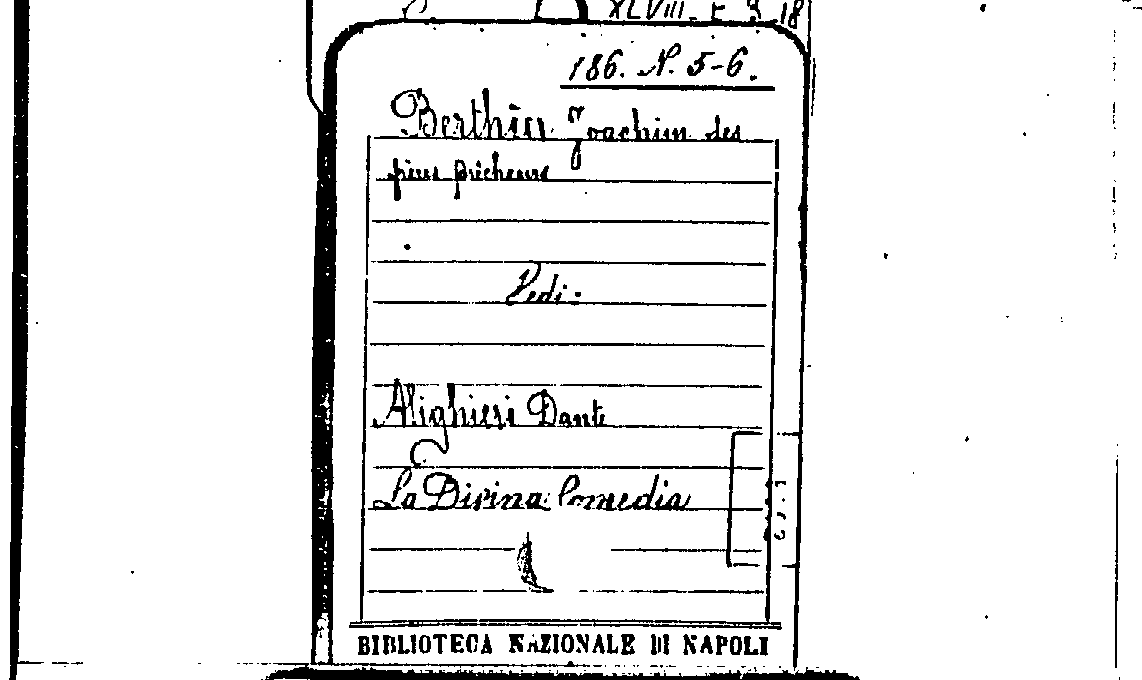 XLVIII. E 9 18
186. N. 5-6.
Berthier Joachim des
frères prêcheurs
Vedi:
Alighieri Dante
La Divina Comedia
BIBLIOTECA NAZIONALE DI NAPOLI